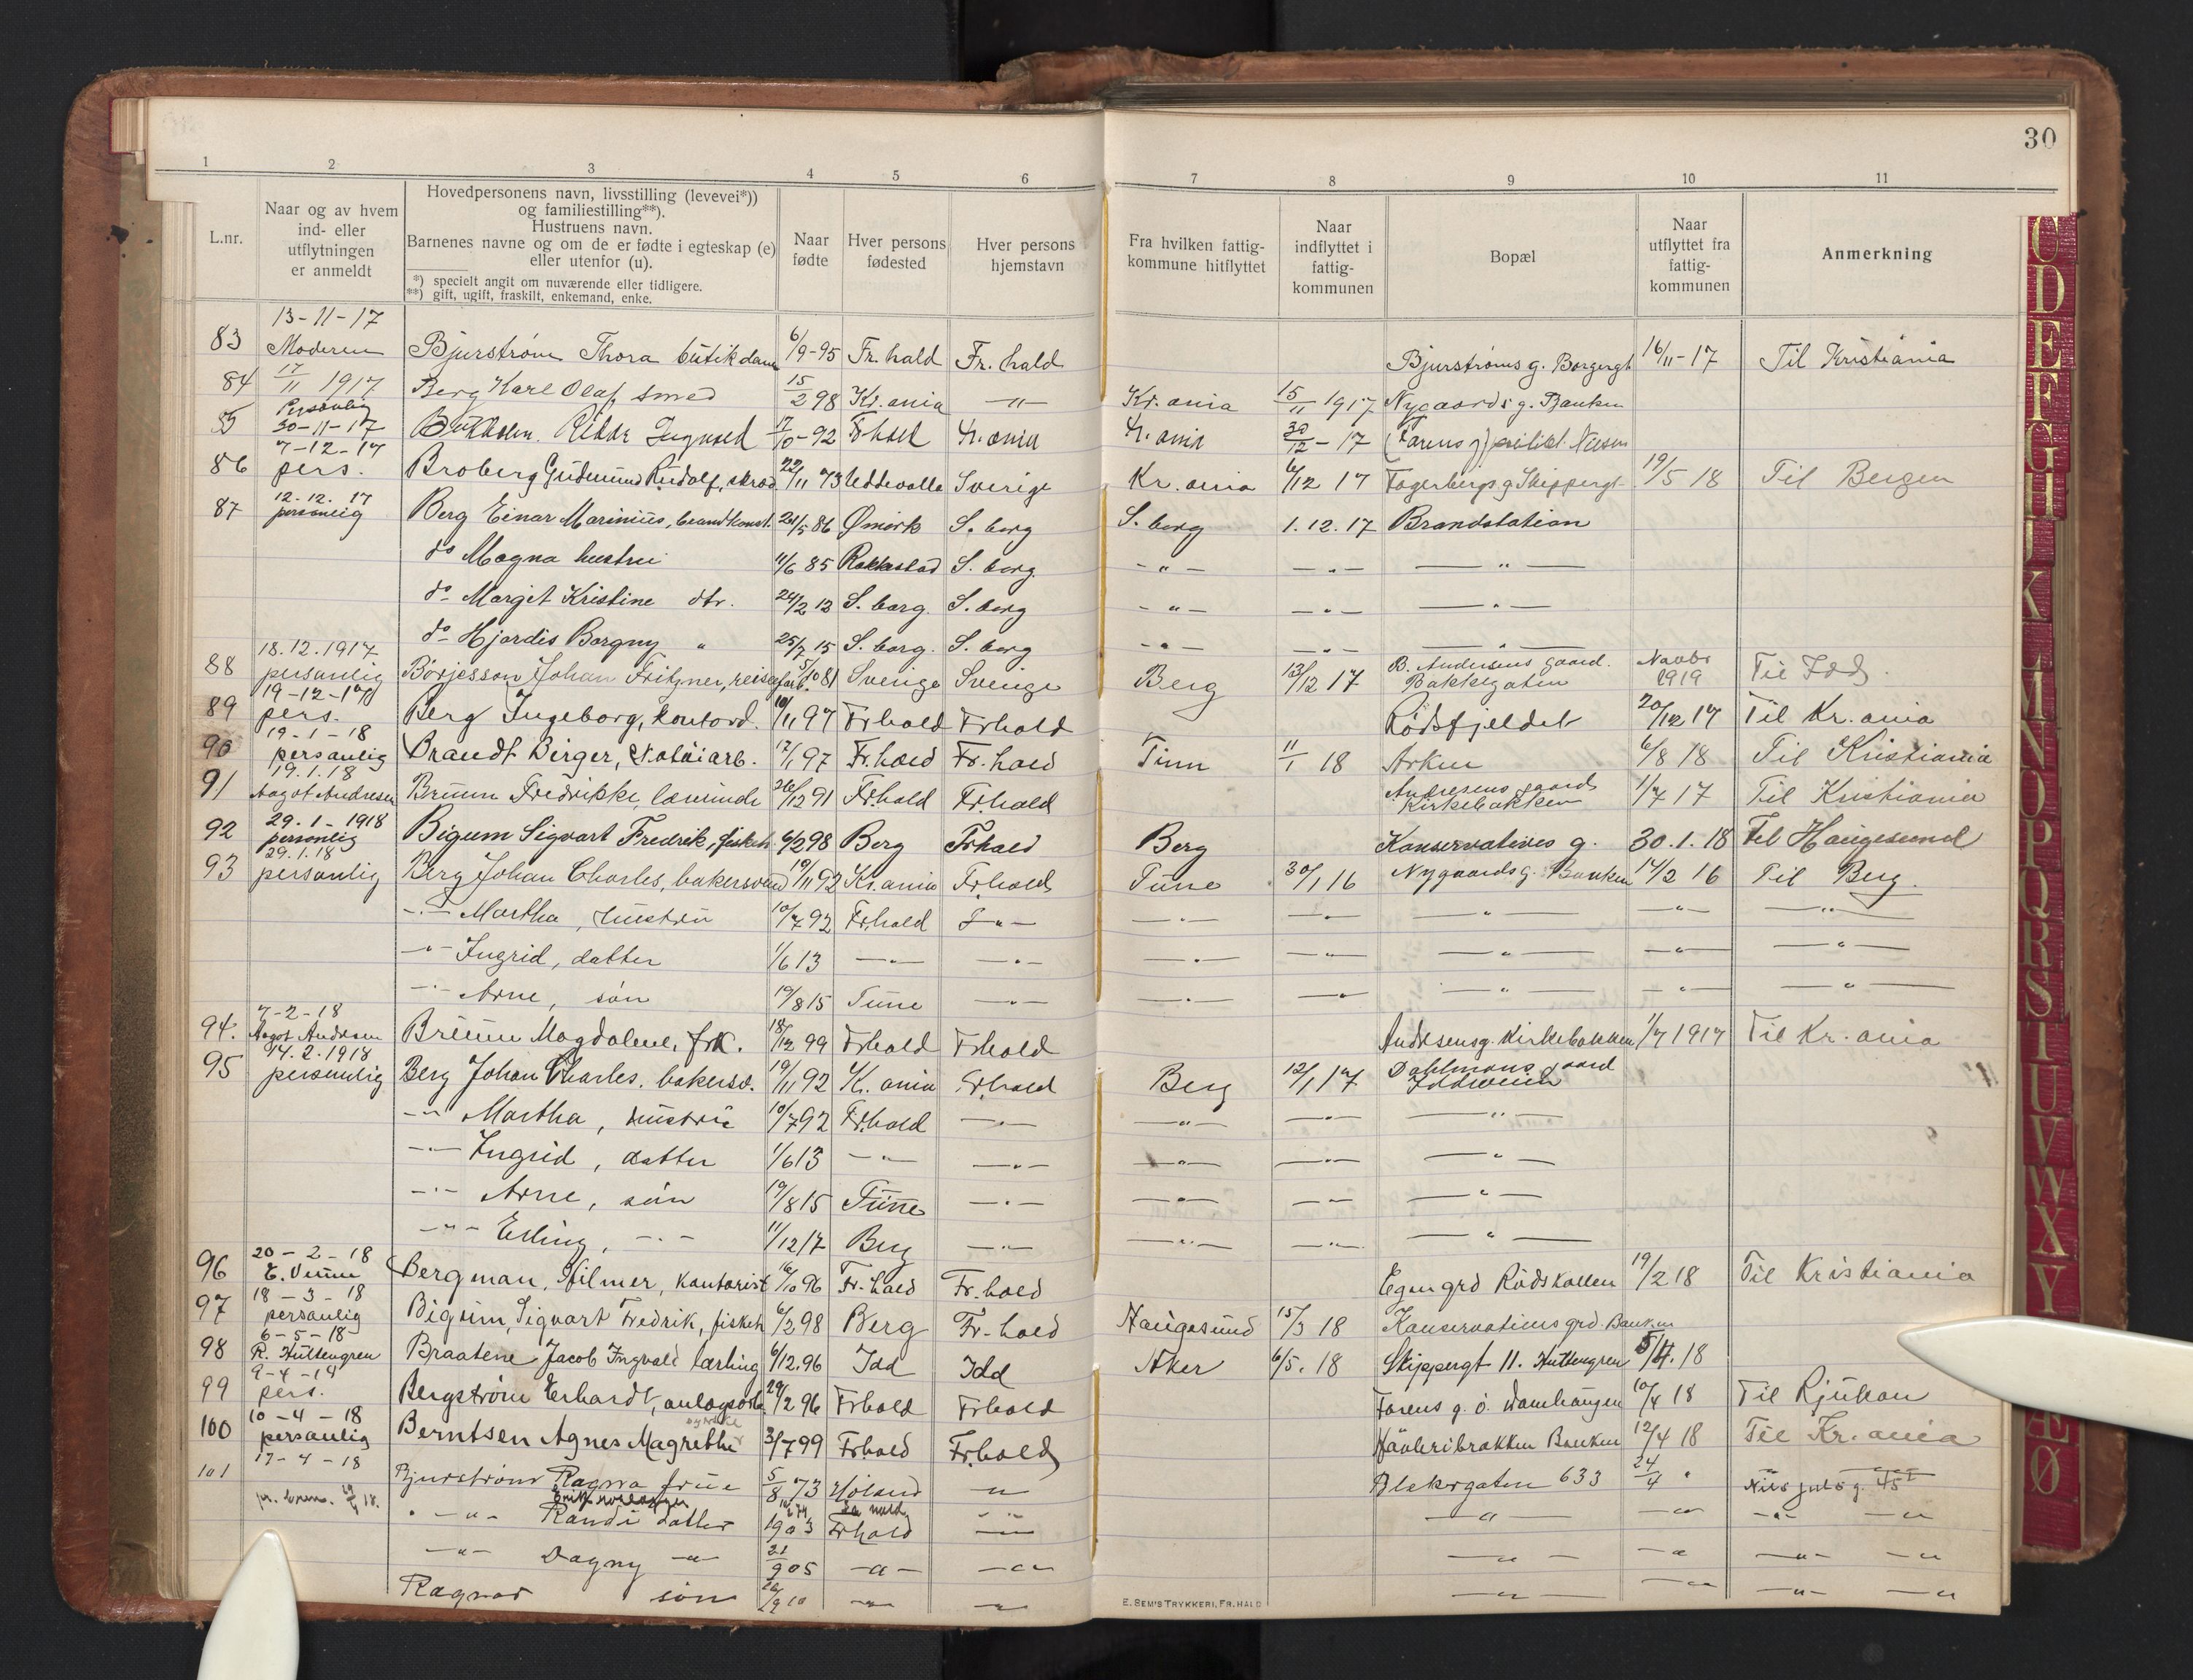 30
1 2 3 4 5 6 7 8 9 10 11
L.nr.
Naar og av hvem
ind- eller
utflytningen
er anmeldt
Hovedpersonens navn, livsstilling (levevei*))
og familiestilling**).
Hustruens navn.
Barnenes navne og om de er fødte i egteskap (e)
eller utenfor (u).
*) specielt angit om nuværende eller tidligere.
**) gift, ugift, fraskilt, enkemand, enke.
Naar
fødte
Hver persons
fødested
Hver persons
hjemstavn
Fra hvilken fattig-
kommune hitflyttet
Naar
indflyttet i
fattig-
kommunen
Bopæl
Naar
utflyttet fra
fattig-
kommunen
Anmerkning
13-11-17
83 Moderen Bjurstrøm Thora butikdam 6/9-95 Fr.hald Fr.hald Bjurstrøms g. Borgergt 16/11-17 Til Kristiania
84 17/11 1917 Berg Karl Olaf smed 15/2 98 Kr.ania -"- Kr.ania 15/11 1917 Nygaards g. Banken
Personlig
85 30-11-17 17/10-92 Fr.hald Kr.ania Kr.ania 30/12-17
7-12-17
86 pers. Broberg Gudmund Rudolf, skræd. 22/11 73 Uddevalla Sverige Kr.ania 6/12 17 Fagerbergs g Skippergt 19/5 18 Til Bergen
12.12.17
87 personlig Berg Einar Marinius, brandkonst. 21/5 86 Ømark S.borg S.borg 1.12.17 Brandstation
do Magna hustru 11/6 85 Rakkestad S.borg -"- -"- -"-
do Margit Kristine dtr. 24/2 12 S.borg S.borg -"- -"- -"-
do Hjørdis Borgny " 25/7 15 S.borg S.borg -"- -"- -"-
18.12.1917
88 personlig Börjesson Johan Fritzner, reisefarb. 5/10 81 Sverige Sverige Berg 13/12 17 B. Andersens gaard. Bakkegaten Novbr 1919 Til Idd.
19-12-17
89 pers. Berg Ingeborg, kontord. 10/11 97 Frhald Frhald Rödsfjeldet 20/12 17 Til Kr.ania
19-1-18
90 personlig Brandt Birger, Notöiarb. 17/1 97 Fr.hald Fr.hald Tinn 11/1 18 Arken 6/8 18 Til Kristiania
19.1.18
91 Aagot Andresen Bruun Fredrikke, lærerinde 26/12 91 Fr.hald Frhald Andresens gaard Kirkebakken 1/7 17 Til Kristiania
29.1-1918
92 personlig Bigum Sigvart Fredrik, fiskeh. 6/2 98 Berg Frhald Berg Konservatives g. 30.1.18 Til Haugesund
29.1.18
93 personlig Berg Johan Charles, bakersvend 19/11 92 Kr.ania Fr.hald Tune 30/1 16 Nygaards g. Banken 14/2 16 Til Berg.
-"- Martha, hustru 10/7 92 Fr.hald -"- -"- -"- -"- -"- -"-
-"- Ingrid, datter 1/6 13 -"- -"- -"- -"- -"- -"- -"-
-"- Arne, sön 19/8 15 Tune -"- -"- -"- -"- -"- -"-
7-2-18
94. Aagot Andresen Bruun Magdalene, frk. 18/12 99 Frhald Frhald Andresens g. Kirkebakken 1/7 1917 Til Kr.ania
14.2.1918
95 personlig Berg Johan Charles, bakersv. 19/11 92 Kr.ania Frhald Berg 12/1 17 Dahlmans gaard Iddveien
-"- Martha, hustru 10/7 92 Fr.hald -"- -"- -"- -"-
-"- Ingrid, datter 1/6 13 -"- -"- -"- -"- -"-
-"- Arne, sön 19/8 15 Tune -"- -"- -"- -"-
-"- Erling, -"- 11/12 17 Berg -"- -"- -"- -"-
20-2-18
96 Bergman, Hilmer, kontorist 16/10 96 Fr.hald Fr.hald Egengrd Rödskollen 19/2 18 Til Kristiania
18-3-18
97 personlig Bigum, Sigvart Fredrik, fiskeh 6/2 98 Berg Fr.hald Haugesund 15/3 18 Konservatives grd. Banken
6-5-18
98 R. Huttengren Braatene Jacob Ingvald lærling 6/12.96 Idd Idd Aker 6/5.18 Skippergt 11. Huttengren 18
9-4-18
99 pers. Bergström Erhardt, anlægsarb. 29/2 96 Frhald Frhald Torens g. ö. Damhaugen 10/4 18 Til Rjukan
10-4-18
100 personlig Berntsen Agnes Magrethe 3/7 99 Frhald Fr.hald Banken 12/4 18 Til Kr.ania
17-4-18
101 Bjurström Ragna frue 5/8 73 Höland -"- Blekergaten 633 24/4 " Niels Juels g. 45
-"- Randi datter 1903 Frhald -"- -"- -"- -"- -"-
-"- Dagny -"- 21/9 05 -"- -"- -"- -"- -"- -"-
Ragnar sön 10 -"- -"- -"- -"- -"- -"-
E. SEM'S TRYKKERI, FR.HALD
C D E F G H I J K L M N O P Q R S T U V W X Y Z Æ Ø